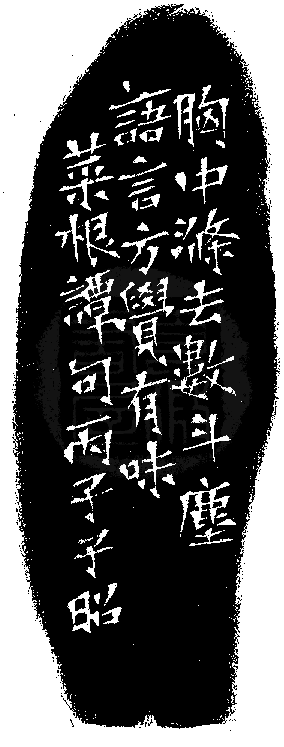 胸中滌去數斗塵
語言方覺有味
菜根譚句丙子子昭